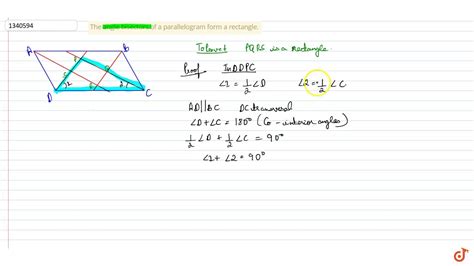 1340594
The angle bisectors of a parallelogram form a rectangle.
A B
D C
To prove PQRS is a rectangle.
Proof In △DPC
∠1 = 1/2 ∠D ∠2 = 1/2 ∠C
AD||BC DC transversal
∠D + ∠C = 180° (Co-interior angles)
1/2 ∠D + 1/2 ∠C = 90°
∠1 + ∠2 = 90°